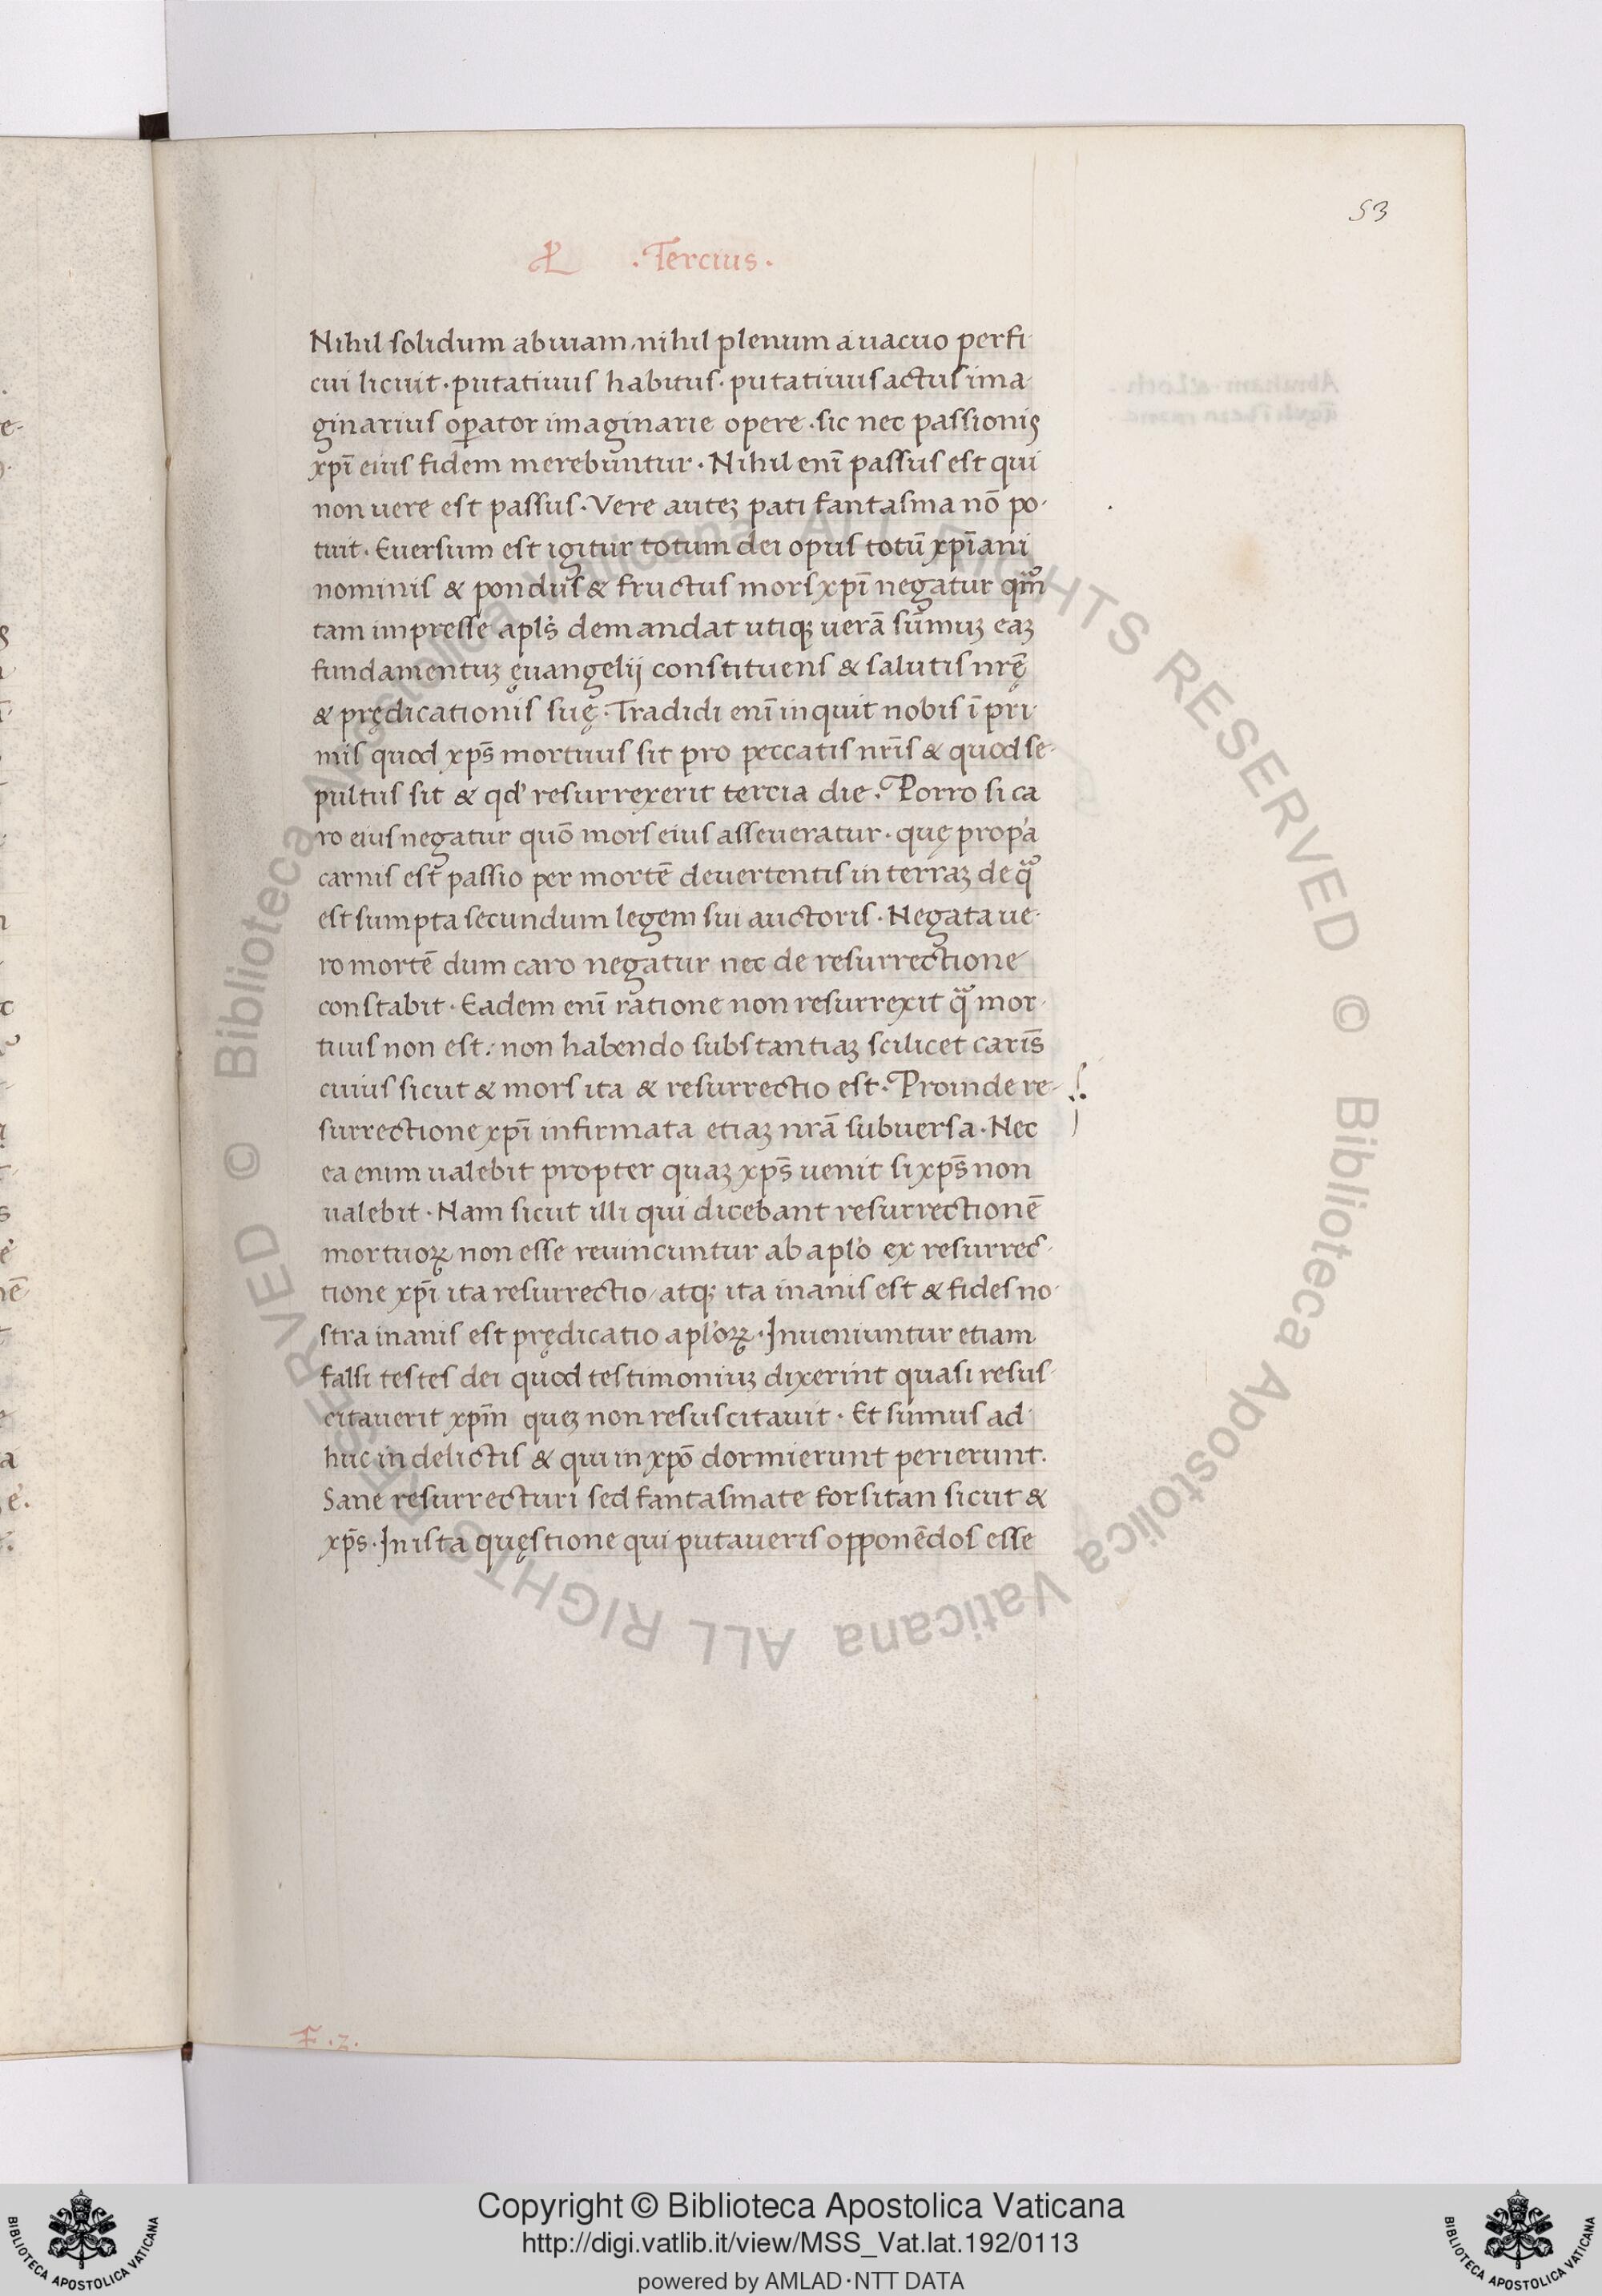 53
.Tercius.
Nihil solidum ab inani nihil plenum a uacuo perfi
cui licuit · putatiuus habitus · putatiuus actus ima
ginarius oꝑator imaginarie opere · sic nec passionis
xpī eius fidem merebuntur · Nihil enī passus est qui
non uere est passus · Vere auteʒ pati fantasma nō po-
tuit · Euersum est igitur totum dei opus totū xpīani
nominis & pondus & fructus mors xpī negatur qm̄
tam impresse apls̄ demandat utiqʒ uerā sūmuʒ eaʒ
fundamentuʒ ęuangelij constituens & salutis nrę̄
& prędicationis suę · Tradidi enī inquit nobis ī pri-
mis quod xps̄ mortuus sit pro peccatis nrīs & quod se-
pultus sit & qd' resurrexerit tercia die · Porro si ca
ro eius negatur quō mors eius asseueratur · quę prop'a
carnis est passio per mortē deuertentis in terraʒ de qͣ
est sumpta secundum legem sui auctoris · Negata ue-
ro mortē dum caro negatur nec de resurrectione
constabit · Eadem enī ratione non resurrexit qͣ mor-
tuus non est: non habendo substantiaʒ scilicet carīs
cuius sicut & mors ita & resurrectio est · Proinde re-
surrectione xpī infirmata etiaʒ nrā subuersa · Nec
ea enim ualebit propter quaʒ xps̄ uenit si xps̄ non
ualebit · Nam sicut illi qui dicebant resurrectionē
mortuoꝝ non esse reuincuntur ab aplo ex resurrec-
tione xpī ita resurrectio atqʒ ita inanis est & fides no-
stra inanis est prędicatio aploꝝ · Inueniuntur etiam
falsi testes dei quod testimoniuʒ dixerint quasi resus-
citauerit xpm̄ queʒ non resuscitauit · Et sumus ad
huc in delictis & qui in xpō dormierunt perierunt.
Sane resurrecturi sed fantasmate forsitan sicut &
xps̄ · In ista quęstione qui putaueris opponēdos esse
F .2.
© Biblioteca Apostolica Vaticana ALL RIGHTS RESERVED © Biblioteca Apostolica Vaticana ALL RIGHTS RESERVED
Copyright © Biblioteca Apostolica Vaticana
http://digi.vatlib.it/view/MSS_Vat.lat.192/0113
powered by AMLAD·NTT DATA
BIBLIOTECA APOSTOLICA VATICANA
BIBLIOTECA APOSTOLICA VATICANA